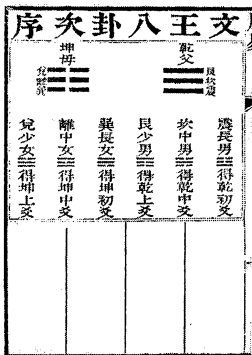 文王八卦次序
乾父
艮坎震
坤母
兌離巽
震長男得乾初爻
坎中男得乾中爻
艮少男得乾上爻
巽長女得坤初爻
離中女得坤中爻
兌少女得坤上爻